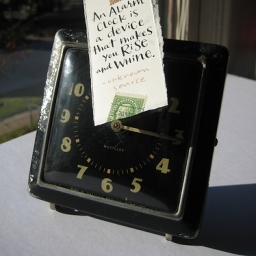 An Alarm
Clock is
a device
that makes
you Rise
and Whine.
-unknown
source
10
2
9
3
8
4
7
6
5
WESTCLOX